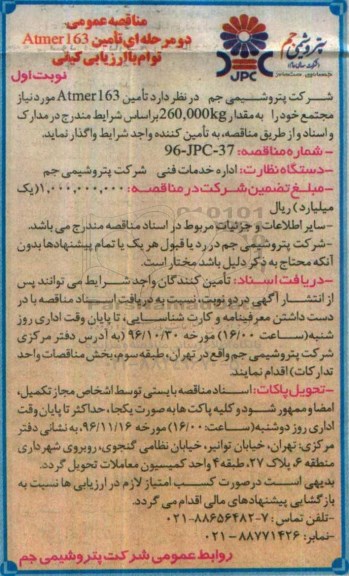 مناقصه عمومی
دو مرحله ای تأمین Atmer 163
توام با ارزیابی کیفی
پتروشیمی جم
JPC
نوبت اول
شرکت پتروشیمی جم در نظر دارد تأمین Atmer 163 مورد نیاز
مجتمع خود را به مقدار 260,000kg براساس شرایط مندرج در مدارک
و اسناد و از طریق مناقصه، به تأمین کننده واجد شرایط واگذار نماید.
- شماره مناقصه: 96-JPC-37
- دستگاه نظارت: اداره خدمات فنی شرکت پتروشیمی جم
- مبلغ تضمین شرکت در مناقصه: ۱,۰۰۰,۰۰۰,۰۰۰ (یک
میلیارد) ریال
- سایر اطلاعات و جزئیات مربوط در اسناد مناقصه مندرج می باشد.
- شرکت پتروشیمی جم در رد یا قبول هر یک یا تمام پیشنهادها بدون
آنکه محتاج به ذکر دلیل باشد مختار است.
- دریافت اسناد: تأمین کنندگان واجد شرایط می توانند پس
از انتشار آگهی در دو نوبت، نسبت به دریافت اسناد مناقصه با در
دست داشتن معرفینامه و کارت شناسایی، تا پایان وقت اداری روز
شنبه (ساعت ۱۶/۰۰) مورخه ۹۶/۱۰/۳۰ (به آدرس دفتر مرکزی
شرکت پتروشیمی جم واقع در تهران، طبقه سوم، بخش مناقصات واحد
تدارکات) اقدام نمایند.
- تحویل پاکات: اسناد مناقصه بایستی توسط اشخاص مجاز تکمیل،
امضا و ممهور شود و کلیه پاکت ها به صورت یکجا، حداکثر تا پایان وقت
اداری روز دوشنبه (ساعت: ۱۶/۰۰) مورخه ۹۶/۱۱/۱۶، به نشانی دفتر
مرکزی: تهران، خیابان توانیر، خیابان نظامی گنجوی، روبروی شهرداری
منطقه ۶، پلاک ۲۷، طبقه ۴ واحد کمیسیون معاملات تحویل گردد.
بدیهی است در صورت کسب امتیاز لازم در ارزیابی ها نسبت به
بازگشایی پیشنهادهای مالی اقدام می گردد.
- تلفن تماس: ۷-۸۸۶۵۶۴۸۲-۰۲۱
- نمابر: ۸۸۷۷۱۴۲۶-۰۲۱
روابط عمومی شرکت پتروشیمی جم